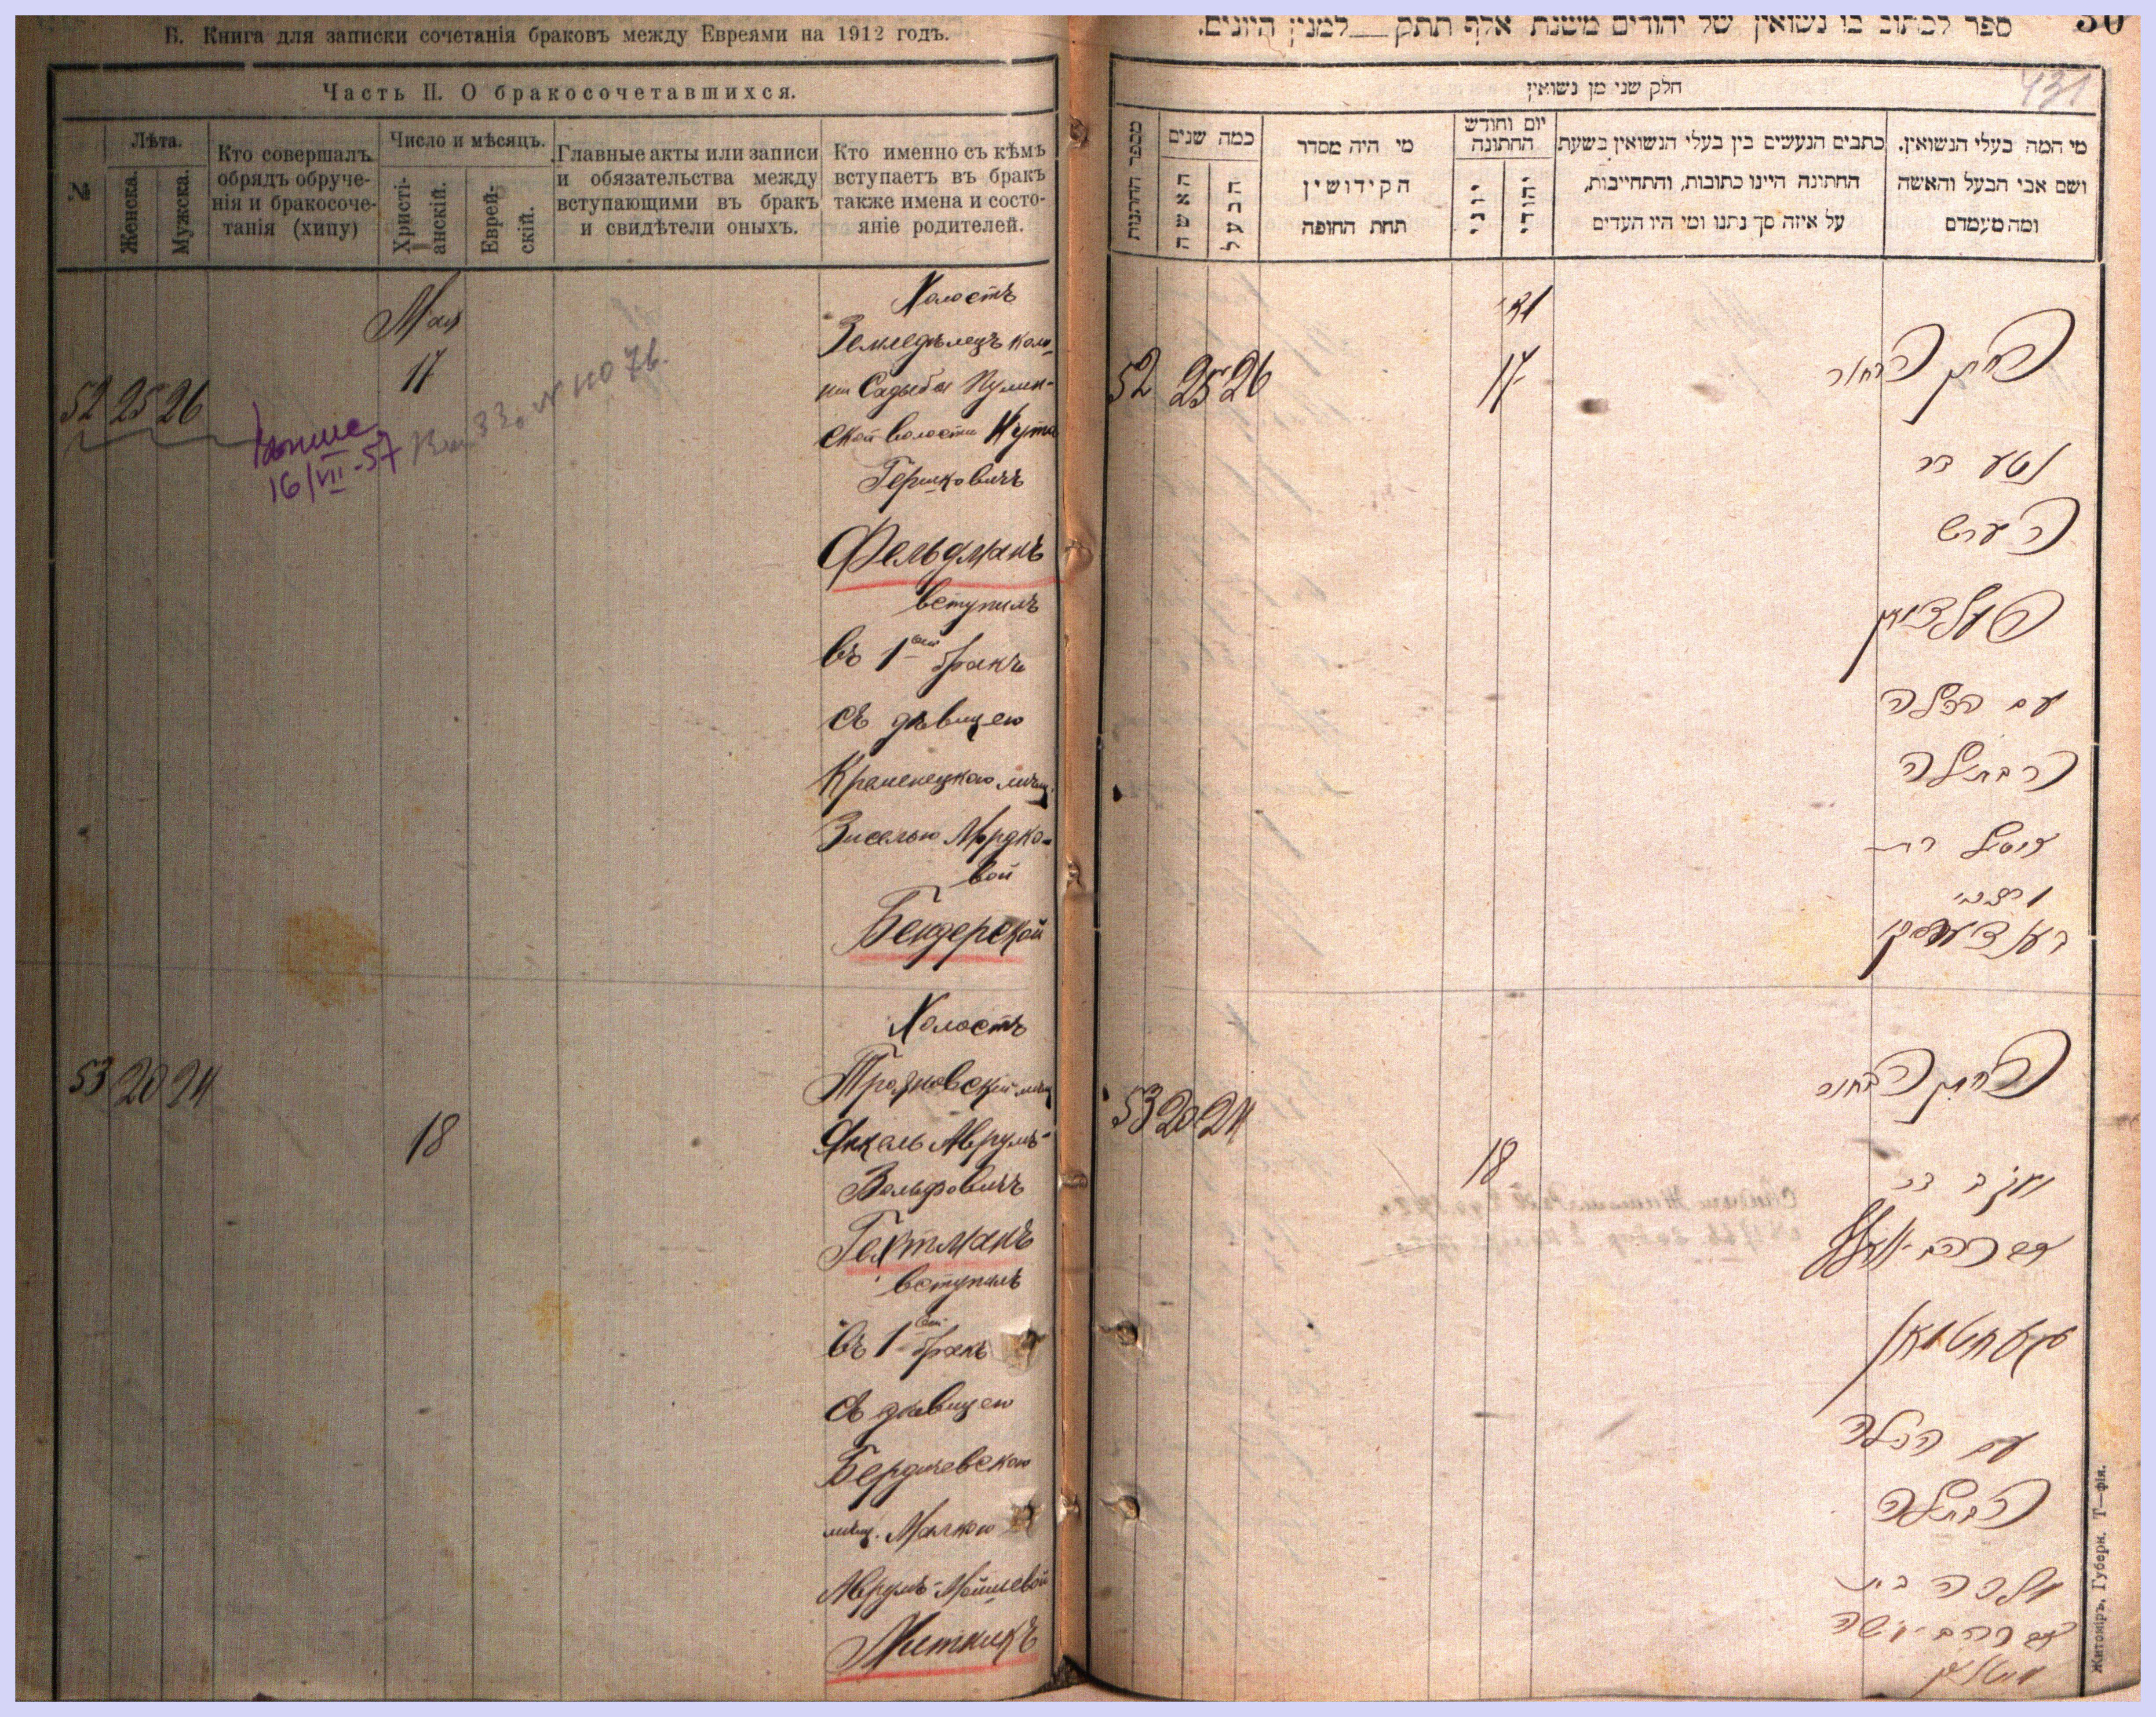 Б. Книга для записки сочетанія браковъ между Евреями на 1912 годъ.
Часть II. О бракосочетавшихся.
№
Лѣта.
Женска.
Мужска.
Кто совершалъ
обрядъ обруче-
нія и бракосоче-
танія (хипу)
Число и мѣсяцъ.
Христі-
анскій.
Еврей-
скій.
Главные акты или записи
и обязательства между
вступающими въ бракъ
и свидѣтели оныхъ.
Кто именно съ кѣмъ
вступаетъ въ бракъ
также имена и состо-
яніе родителей.
52 25 26
Мая
17
16/VII-57
Холостъ
Земледѣлецъ коло-
ніи Садыба Пулин-
ской волости Нута
Гершковичъ
Фельдманъ
вступилъ
въ 1ый бракъ
съ дѣвицею
Кременецкою мѣщ.
Зиселью Мордко-
вой
Бендерской
53 20 24
18
Холостъ
мѣщ
Янкель Аврумъ-
Вольфовичъ
Гехтманъ
вступилъ
въ 1ый бракъ
съ дѣвицею
Бердичевскою
мѣщ. Малкою
Аврумъ-Мошковой
30
ספר לכתוב בו נשואין של יהודים משנת אלף תתק למנין היונים.
431
חלק שני מן נשואין
מספר החתונות
כמה שנים
האשה
הבעל
מי היה מסדר
הקידושין
תחת החופה
יום וחודש
החתונה
יוני
יהודי
כתבים הנעשים בין בעלי הנשואין בשעת
החתינה היינו כתובות, והתחייבות,
על איזה סך נתנו ומי היו העדים
מי המה בעלי הנשואין.
ושם אבי הבעל והאשה
ומה מעמדם
52 25 26
17
החתן הבחור
נטע בר
הערש
פעלדמאן
עם הכלה
הבתולה
זיסל בת
מרדכי
בענדערסקי
53 20 24
18
החתן הבחור
יענקל בר
אברהם וואלף
געכטמאן
עם הכלה
הבתולה
מלכה בת
אברהם משה
Житоміръ, Губерн. Т—фія.